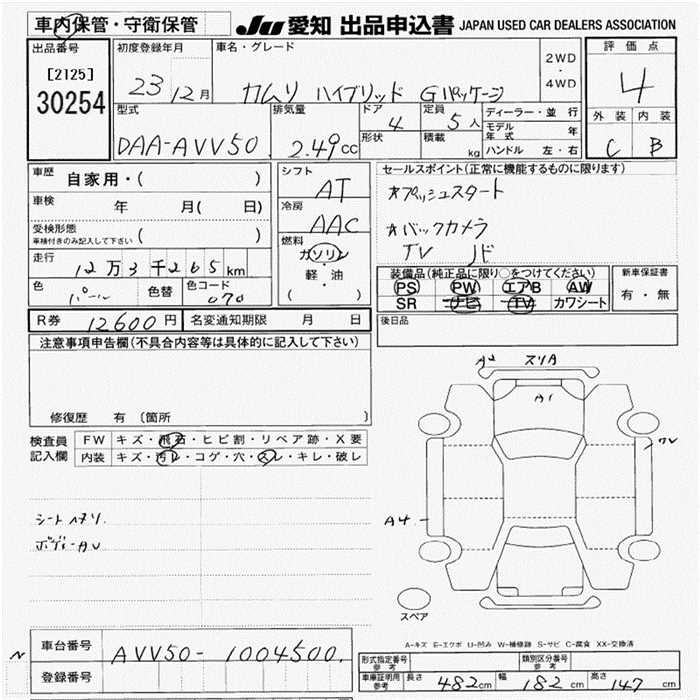 車内保管・守衛保管
JU 愛知 出品申込書 JAPAN USED CAR DEALERS ASSOCIATION
出品番号
[2125]
30254
初度登録年月
23 12月
車名・グレード
カムリ ハイブリッド Gパッケージ
2WD
・
4WD
評価点
4
外装 内装
C B
型式
DAA-AVV50
排気量
2.49cc
ドア
4
定員
5人
形状
積載
kg
ディーラー・並行
モデル年式 年
ハンドル 左・右
車歴
自家用・( )
車検 年 月( 日)
受検形態
車検付きのみ記入して下さい ( )
走行
12万3千265km
色
パール
色替
色コード
070
シフト
AT
冷房
AAC
燃料
ガソリン
・
軽・油
( )
セールスポイント(正常に機能するものに限ります)
*プッシュスタート
*バックカメラ
TV
装備品(純正品に限り○をつけてください)
PS PW エアB AW
SR ナビ TV カワシート
新車保証書
有・無
後日品
R券 12600円 名変通知期限 月 日
注意事項申告欄(不具合内容等は具体的に記入して下さい)
修復歴 有(箇所 )
検査員
記入欄
FW キズ・飛石・ヒビ割・リペア跡・X要
内装 キズ・汚レ・コゲ・穴・スレ・キレ・破レ
シート
ボディーAU
A2 スリA
A1
A4
スペア
A-キズ E-エクボ U-凹み W-補修跡 S-サビ C-腐食 XX-交換済
N
車台番号 AVV50-1004500.
登録番号
形式指定番号
参考
類別区分番号
参考
車庫証明用
参考
長さ 482cm 幅 182cm 高さ 147cm